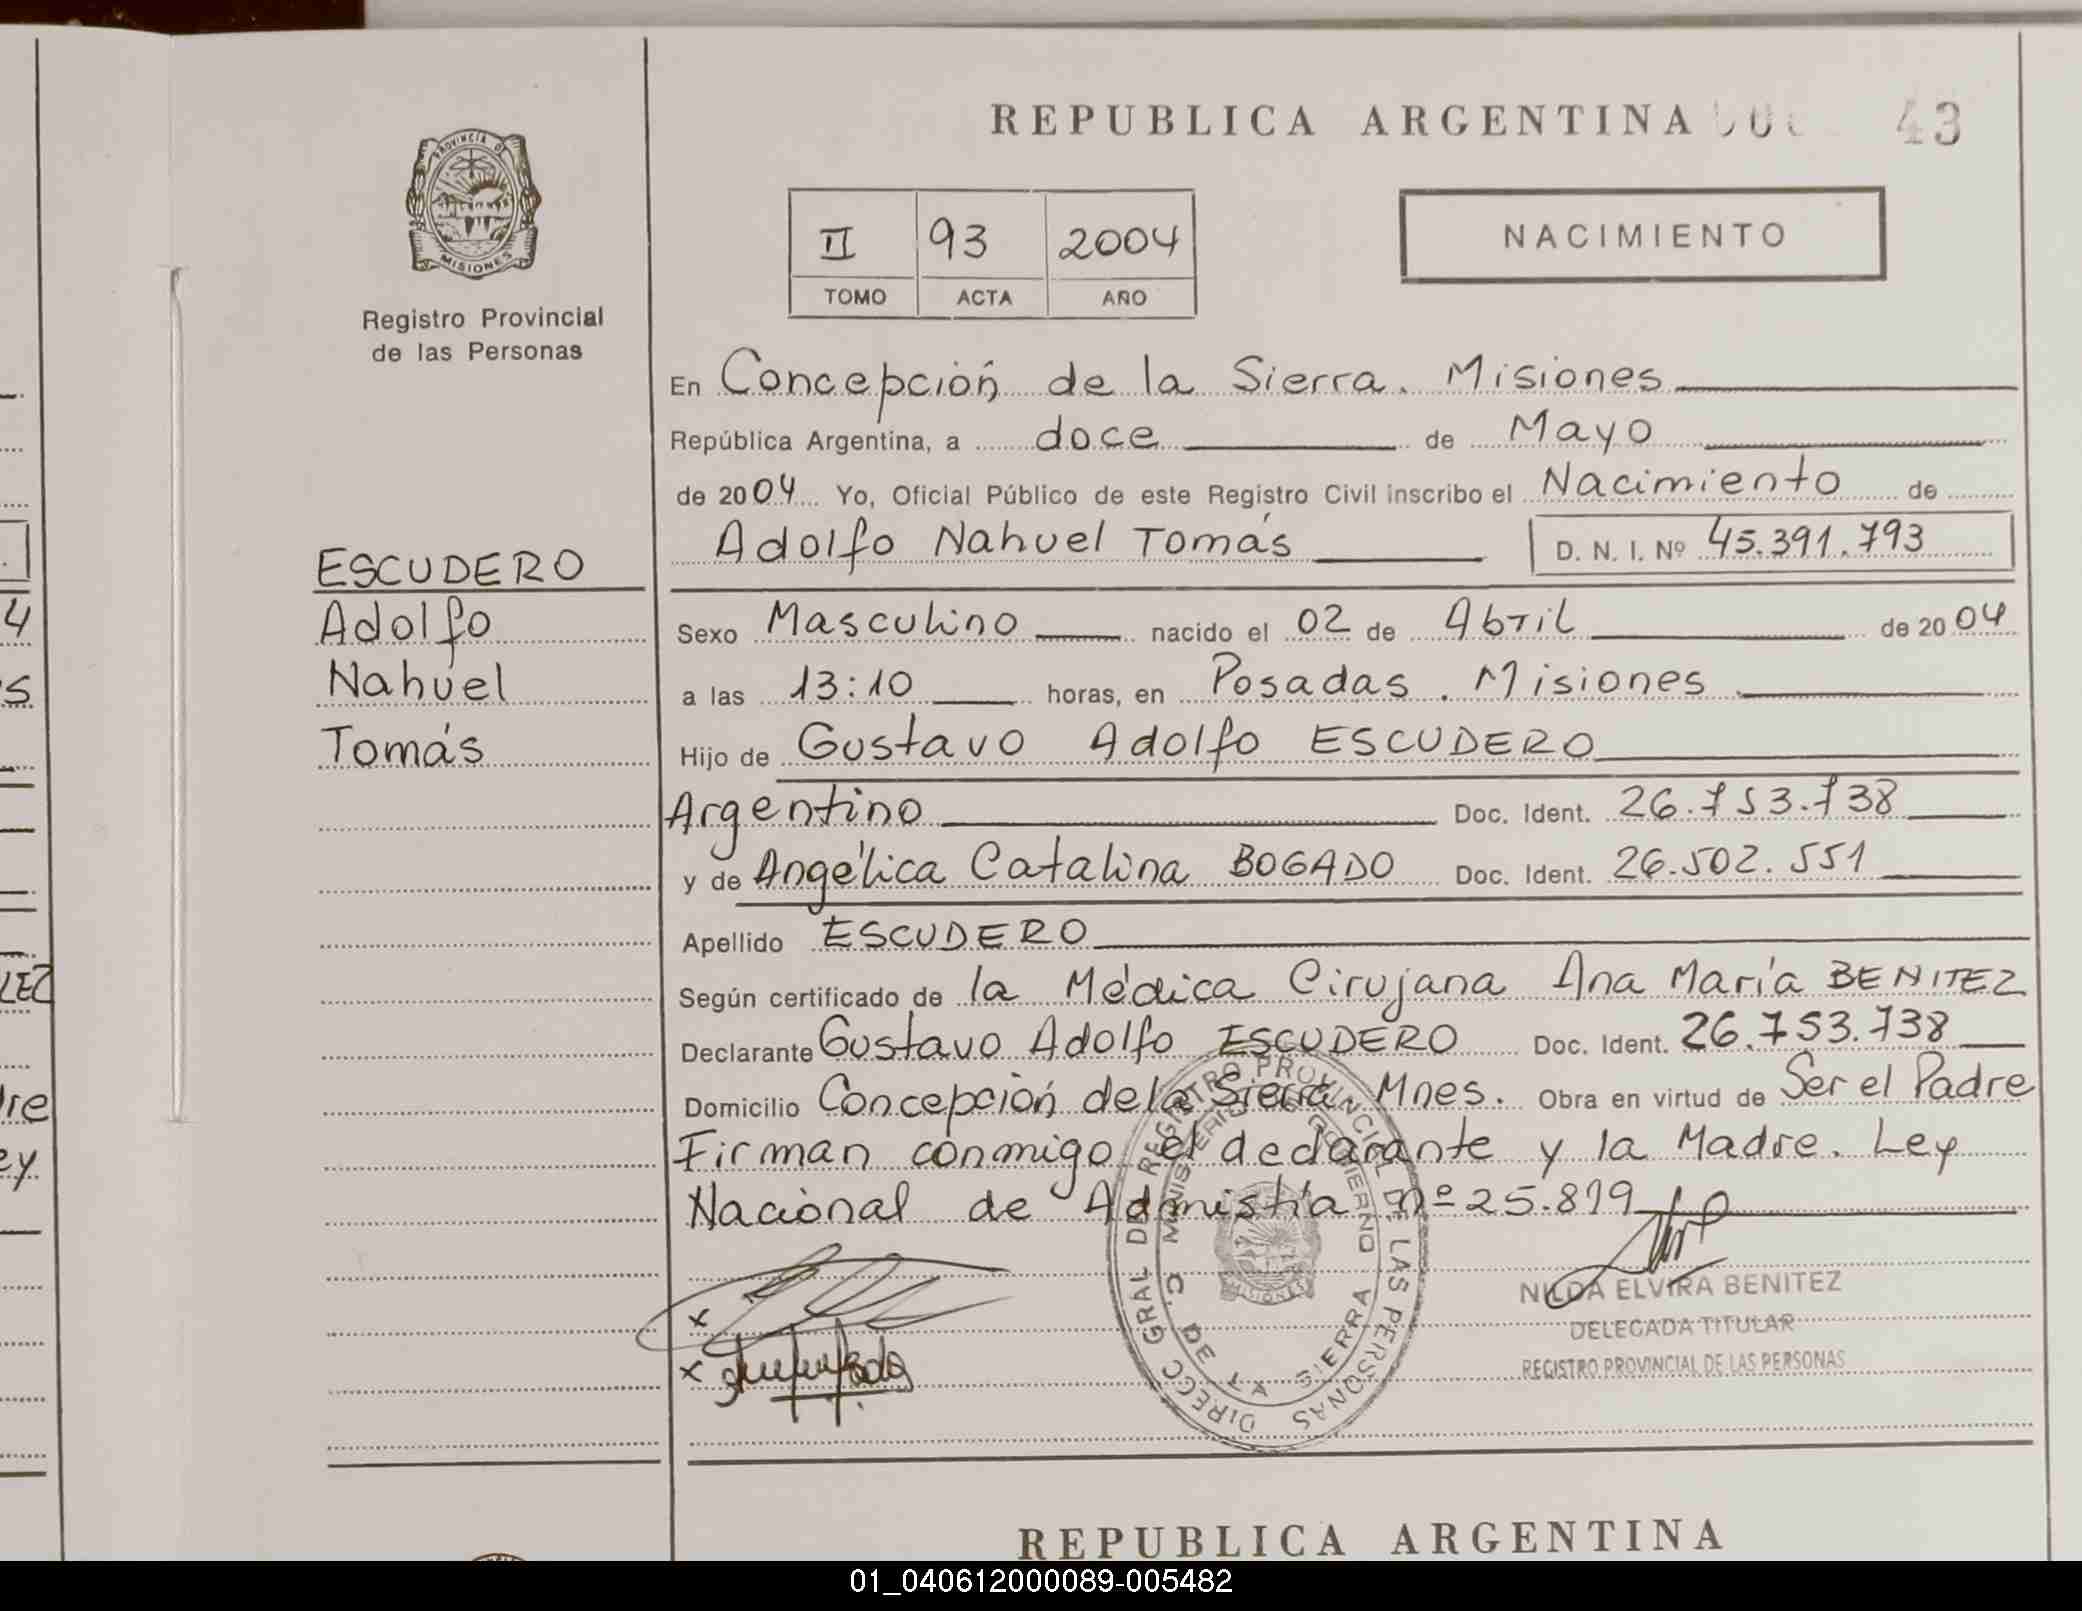 REPUBLICA ARGENTINA 43
PROVINCIA DE
MISIONES
Registro Provincial
de las Personas
II 93 2004
TOMO ACTA AÑO
NACIMIENTO
En Concepción de la Sierra. Misiones
República Argentina, a doce de Mayo
de 2004 Yo, Oficial Público de este Registro Civil inscribo el Nacimiento de
Adolfo Nahuel Tomás D. N. I. Nº 45.391.793
ESCUDERO
Adolfo
Nahuel
Tomás
Sexo Masculino nacido el 02 de Abril de 2004
a las 13:10 horas, en Posadas. Misiones
Hijo de Gustavo Adolfo ESCUDERO
Argentino Doc. Ident. 26.753.738
y de Angélica Catalina BOGADO Doc. Ident. 26.502.551
Apellido ESCUDERO
Según certificado de la Médica Cirujana Ana María BENITEZ
Declarante Gustavo Adolfo ESCUDERO Doc. Ident. 26.753.738
Domicilio Concepción de la Sierra. Mnes. Obra en virtud de Ser el Padre
Firman conmigo el declarante y la Madre. Ley
Nacional de Admistía nº 25.819
DIRECC GRAL DEL REGISTRO PROVINCIAL DE LAS PERSONAS
MINISTERIO DE GOBIERNO
C. DE LA SIERRA
MISIONES
x
x
NILDA ELVIRA BENITEZ
DELEGADA TITULAR
REGISTRO PROVINCIAL DE LAS PERSONAS
REPUBLICA ARGENTINA
01_040612000089-005482